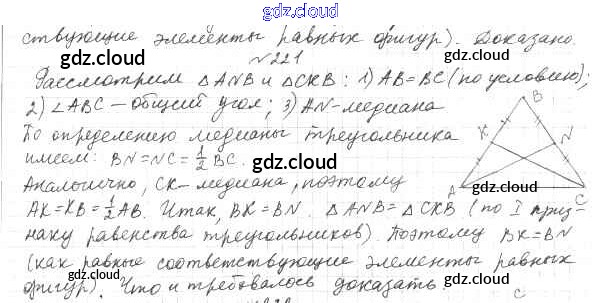 gdz.cloud
ствующие элементы равных фигур). Доказано.
gdz.cloud
№221
Рассмотрим △ANB и △CKB: 1) AB=BC (по условию);
2) ∠ABC – общий угол; 3) AN – медиана
B
По определению медианы треугольника
K
N
имеем: BN=NC=1/2 BC.
gdz.cloud
gdz.cloud
Аналогично, CK – медиана, поэтому
A
C
AK=KB=1/2 AB. Итак, BK=BN. △ANB=△CKB (по I приз-
gdz.cloud
наку равенства треугольников). Поэтому BK=BN
(как равные соответствующие элементы равных
gdz.cloud
gdz.cloud
фигур). Что и требовалось доказать.
gdz.cloud
C